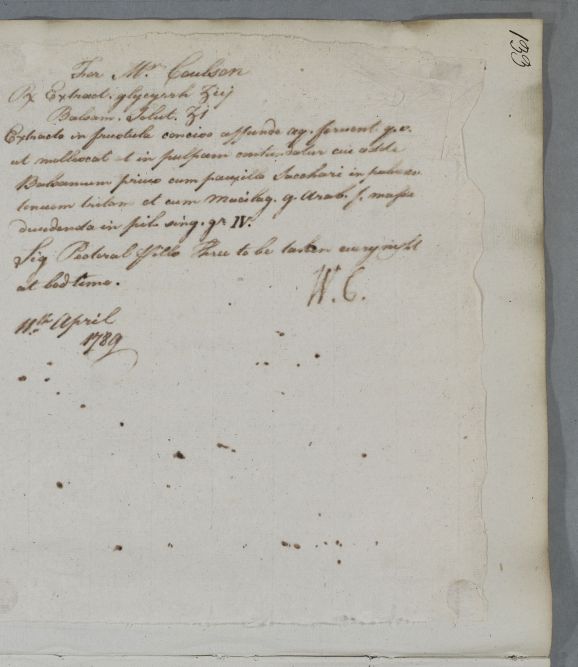 133
For Mr Coulson
Rx Extract. glycyrrh ʒiij
Balsam. Tolut. ʒi
Extracto in frustula conciso affunde aq. fervent. q.s.
ut mollescat et in pulpam contundatur cui adde
Balsamum prius cum pauxillo Sacchari in pulverem
tenuem tritum et cum Mucilag. g. Arab. f. massa
dividenda in pil. sing. gr IV.
Sig Pectoral Pills Three to be taken every night
at bed time.
W. C.
11th April
1789